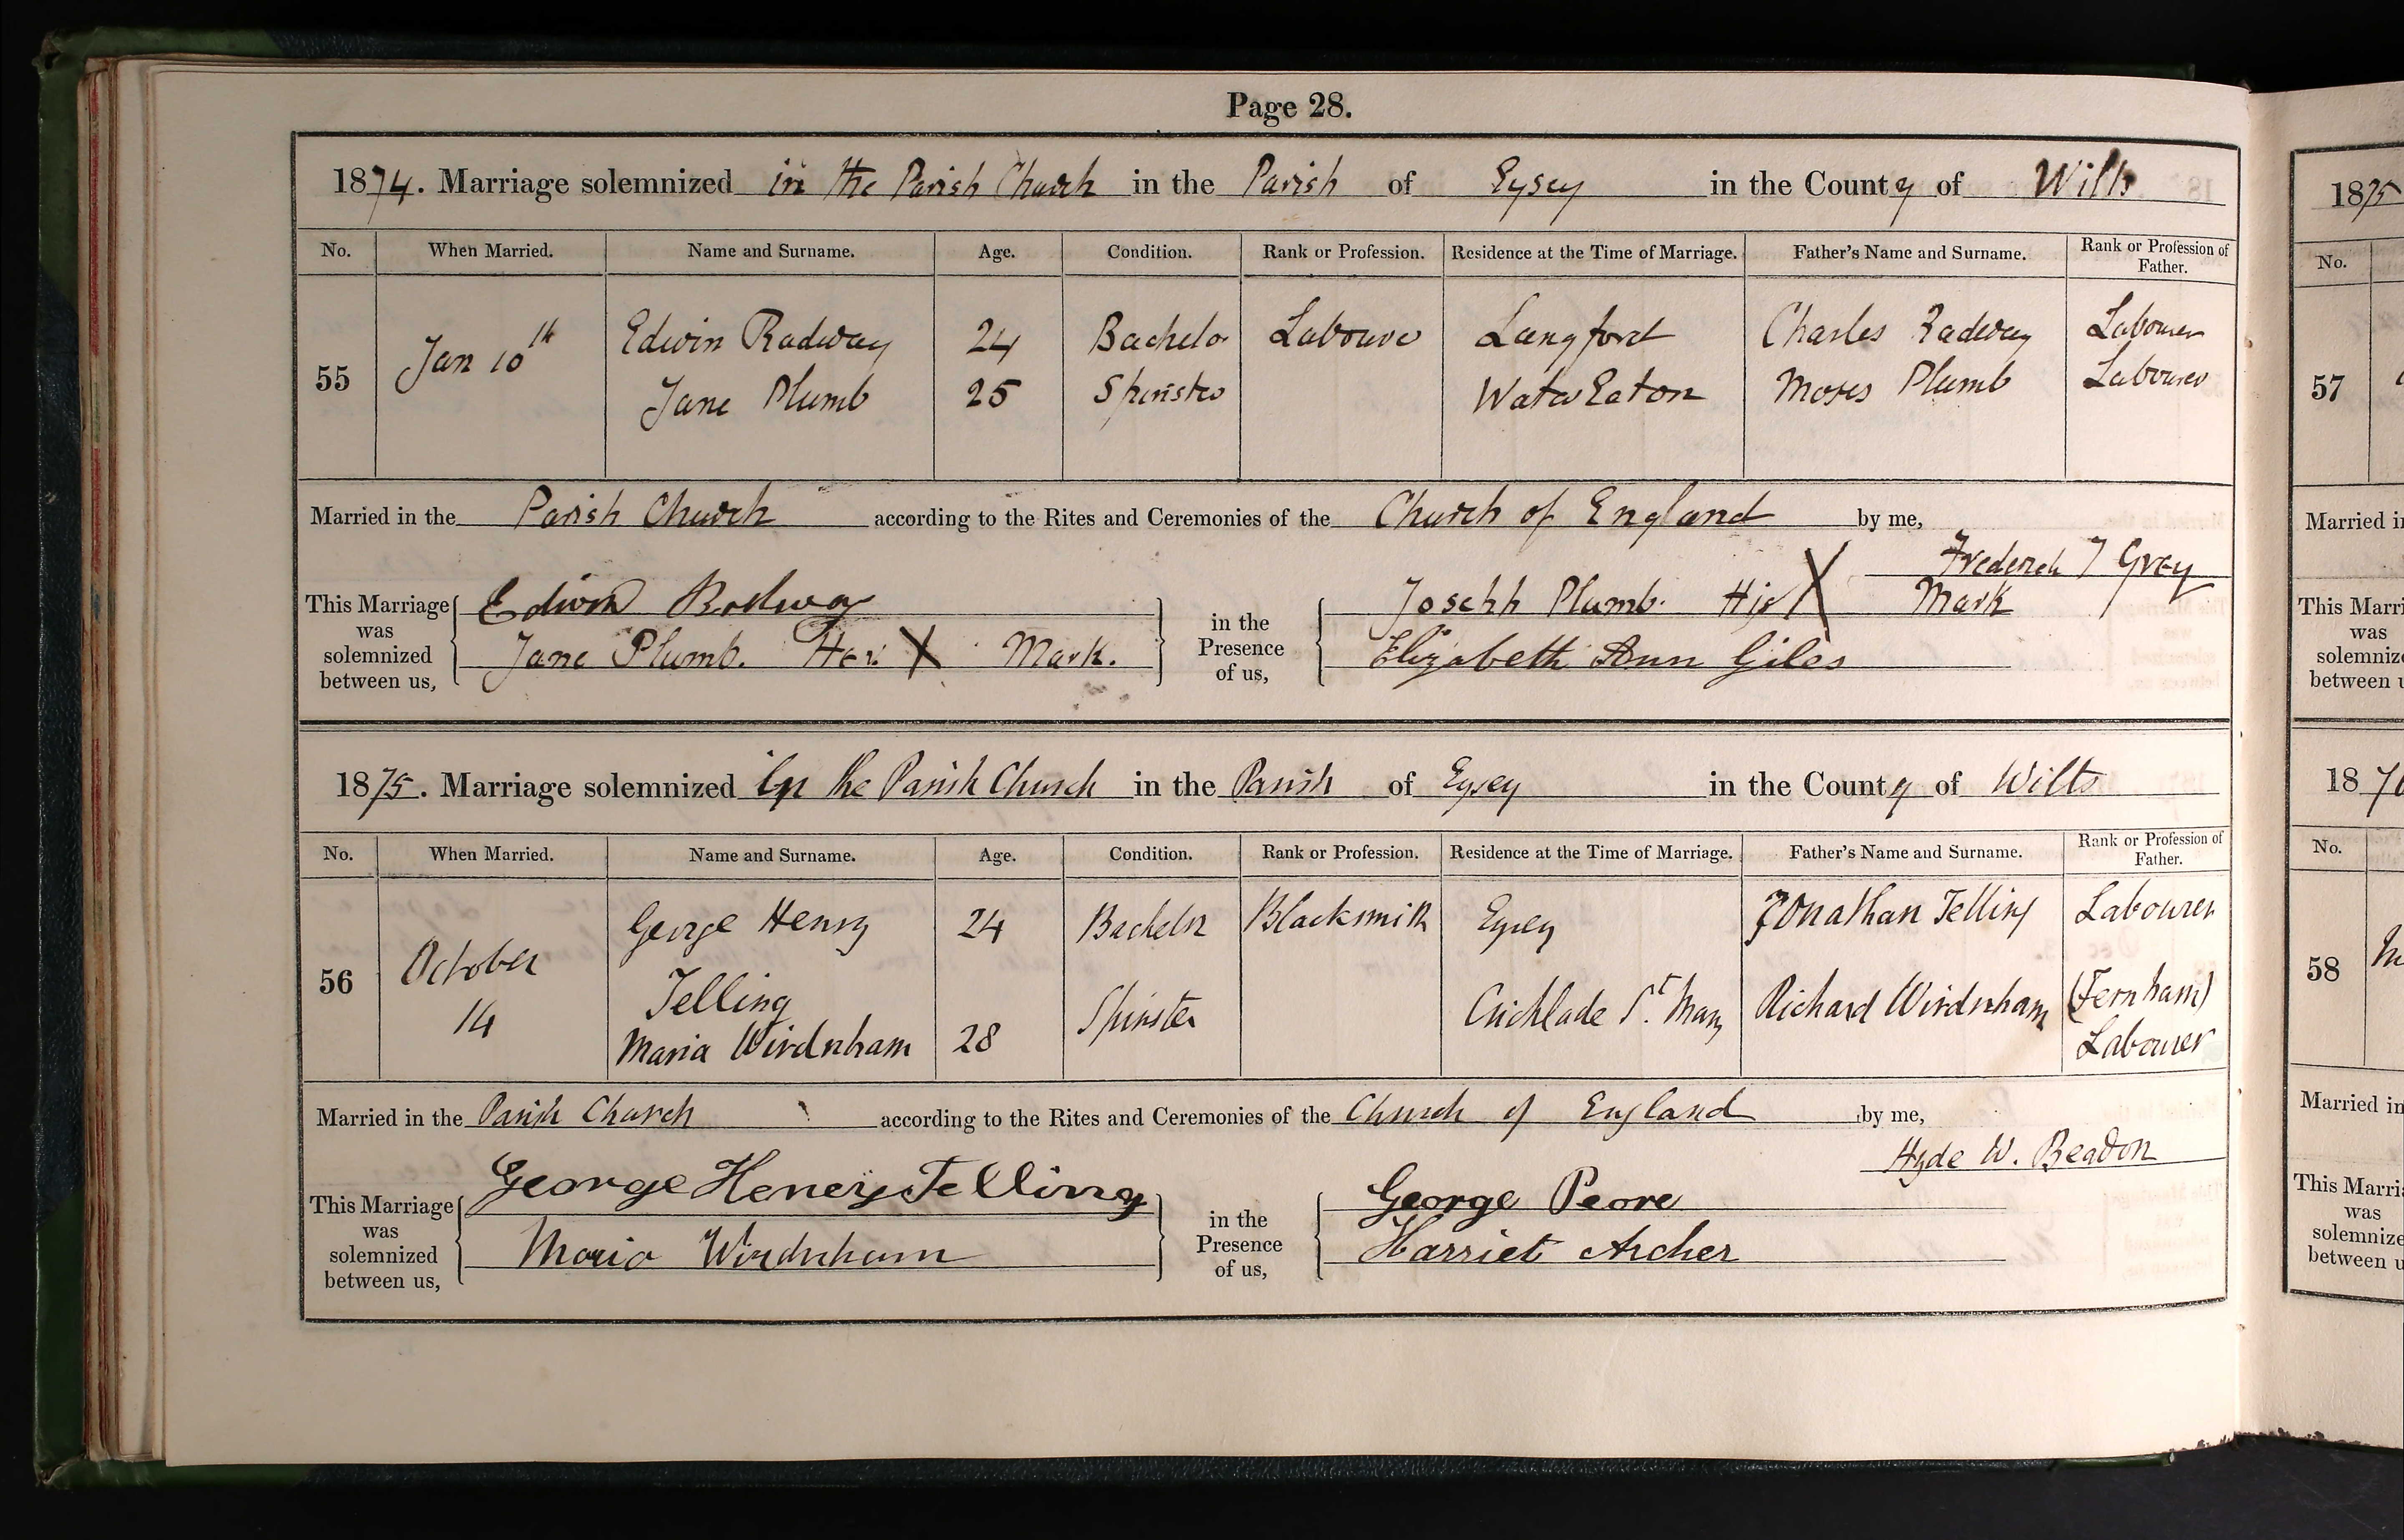 Page 28.
1874. Marriage solemnized in the Parish Church in the Parish of Eysey in the County of Wilts
No. When Married. Name and Surname. Age. Condition. Rank or Profession. Residence at the Time of Marriage. Father's Name and Surname. Rank or Profession of Father.
55 Jan 10th Edwin Radway 24 Bachelor Labourer Langford Charles Radway Labourer
Jane Plumb 25 Spinster Water Eaton Moses Plumb Labourer
Married in the Parish Church according to the Rites and Ceremonies of the Church of England by me,
Frederick J Grey
This Marriage was solemnized between us, Edwin Rodway in the Presence of us, Joseph Plumb. His X Mark
Jane Plumb. Her X Mark. Elizabeth Ann Giles
1875. Marriage solemnized in the Parish Church in the Parish of Eysey in the County of Wilts
No. When Married. Name and Surname. Age. Condition. Rank or Profession. Residence at the Time of Marriage. Father's Name and Surname. Rank or Profession of Father.
56 October 14 George Henry Telling 24 Bachelor Blacksmith Eysey Jonathan Telling Labourer
Maria Wirdnham 28 Spinster Cricklade St. Mary Richard Wirdnham (Fernham) Labourer
Married in the Parish Church according to the Rites and Ceremonies of the Church of England by me,
Hyde W. Beadon
This Marriage was solemnized between us, George Henery Telling in the Presence of us, George Peore
Maria Wirdnham Harriet Archer
1875
No.
57
Married in
This Marri
was
solemnize
between u
187
No.
58
Married in
This Marri
was
solemnize
between u